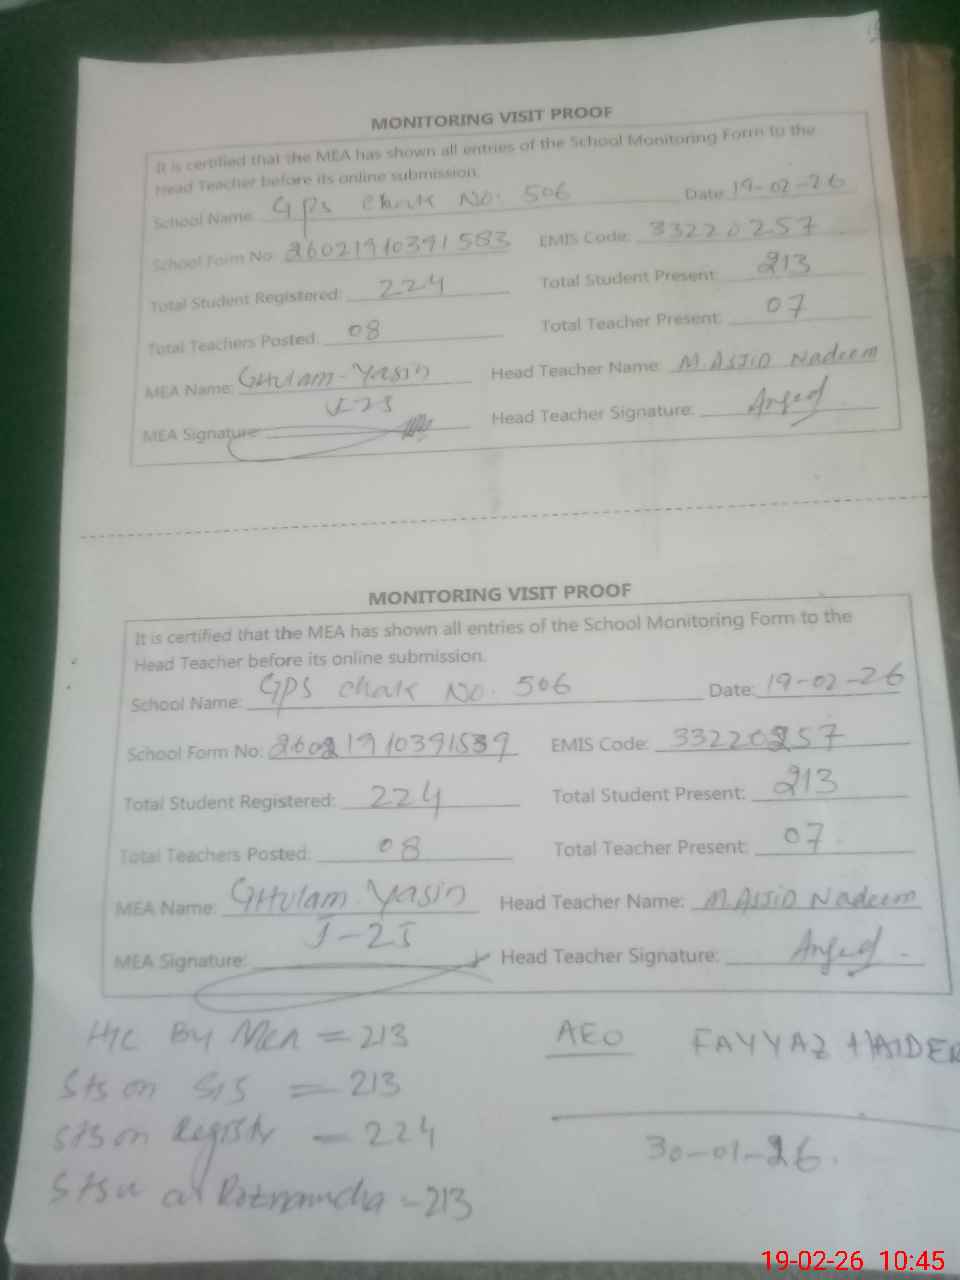 MONITORING VISIT PROOF
It is certified that the MEA has shown all entries of the School Monitoring Form to the
Head Teacher before its online submission.
School Name: GPS Chak No. 506 Date: 19-02-26
School Form No: 26021910391583 EMIS Code: 33220257
Total Student Registered: 224 Total Student Present: 213
Total Teachers Posted: 08 Total Teacher Present: 07
MEA Name: GHulam Yasin Head Teacher Name: M. Nadeem
MEA Signature: Head Teacher Signature:
MONITORING VISIT PROOF
It is certified that the MEA has shown all entries of the School Monitoring Form to the
Head Teacher before its online submission.
School Name: GPS Chak No. 506 Date: 19-02-26
School Form No: 26021910391589 EMIS Code: 33220257
Total Student Registered: 224 Total Student Present: 213
Total Teachers Posted: 08 Total Teacher Present: 07
MEA Name: GHulam Yasin Head Teacher Name: M. Nadeem
MEA Signature: Head Teacher Signature:
H/C By MEA = 213 AEO FAYYAZ HAIDER
Sts on SIS = 213
Sts on Register = 224 30-01-26.
213
19-02-26 10:45